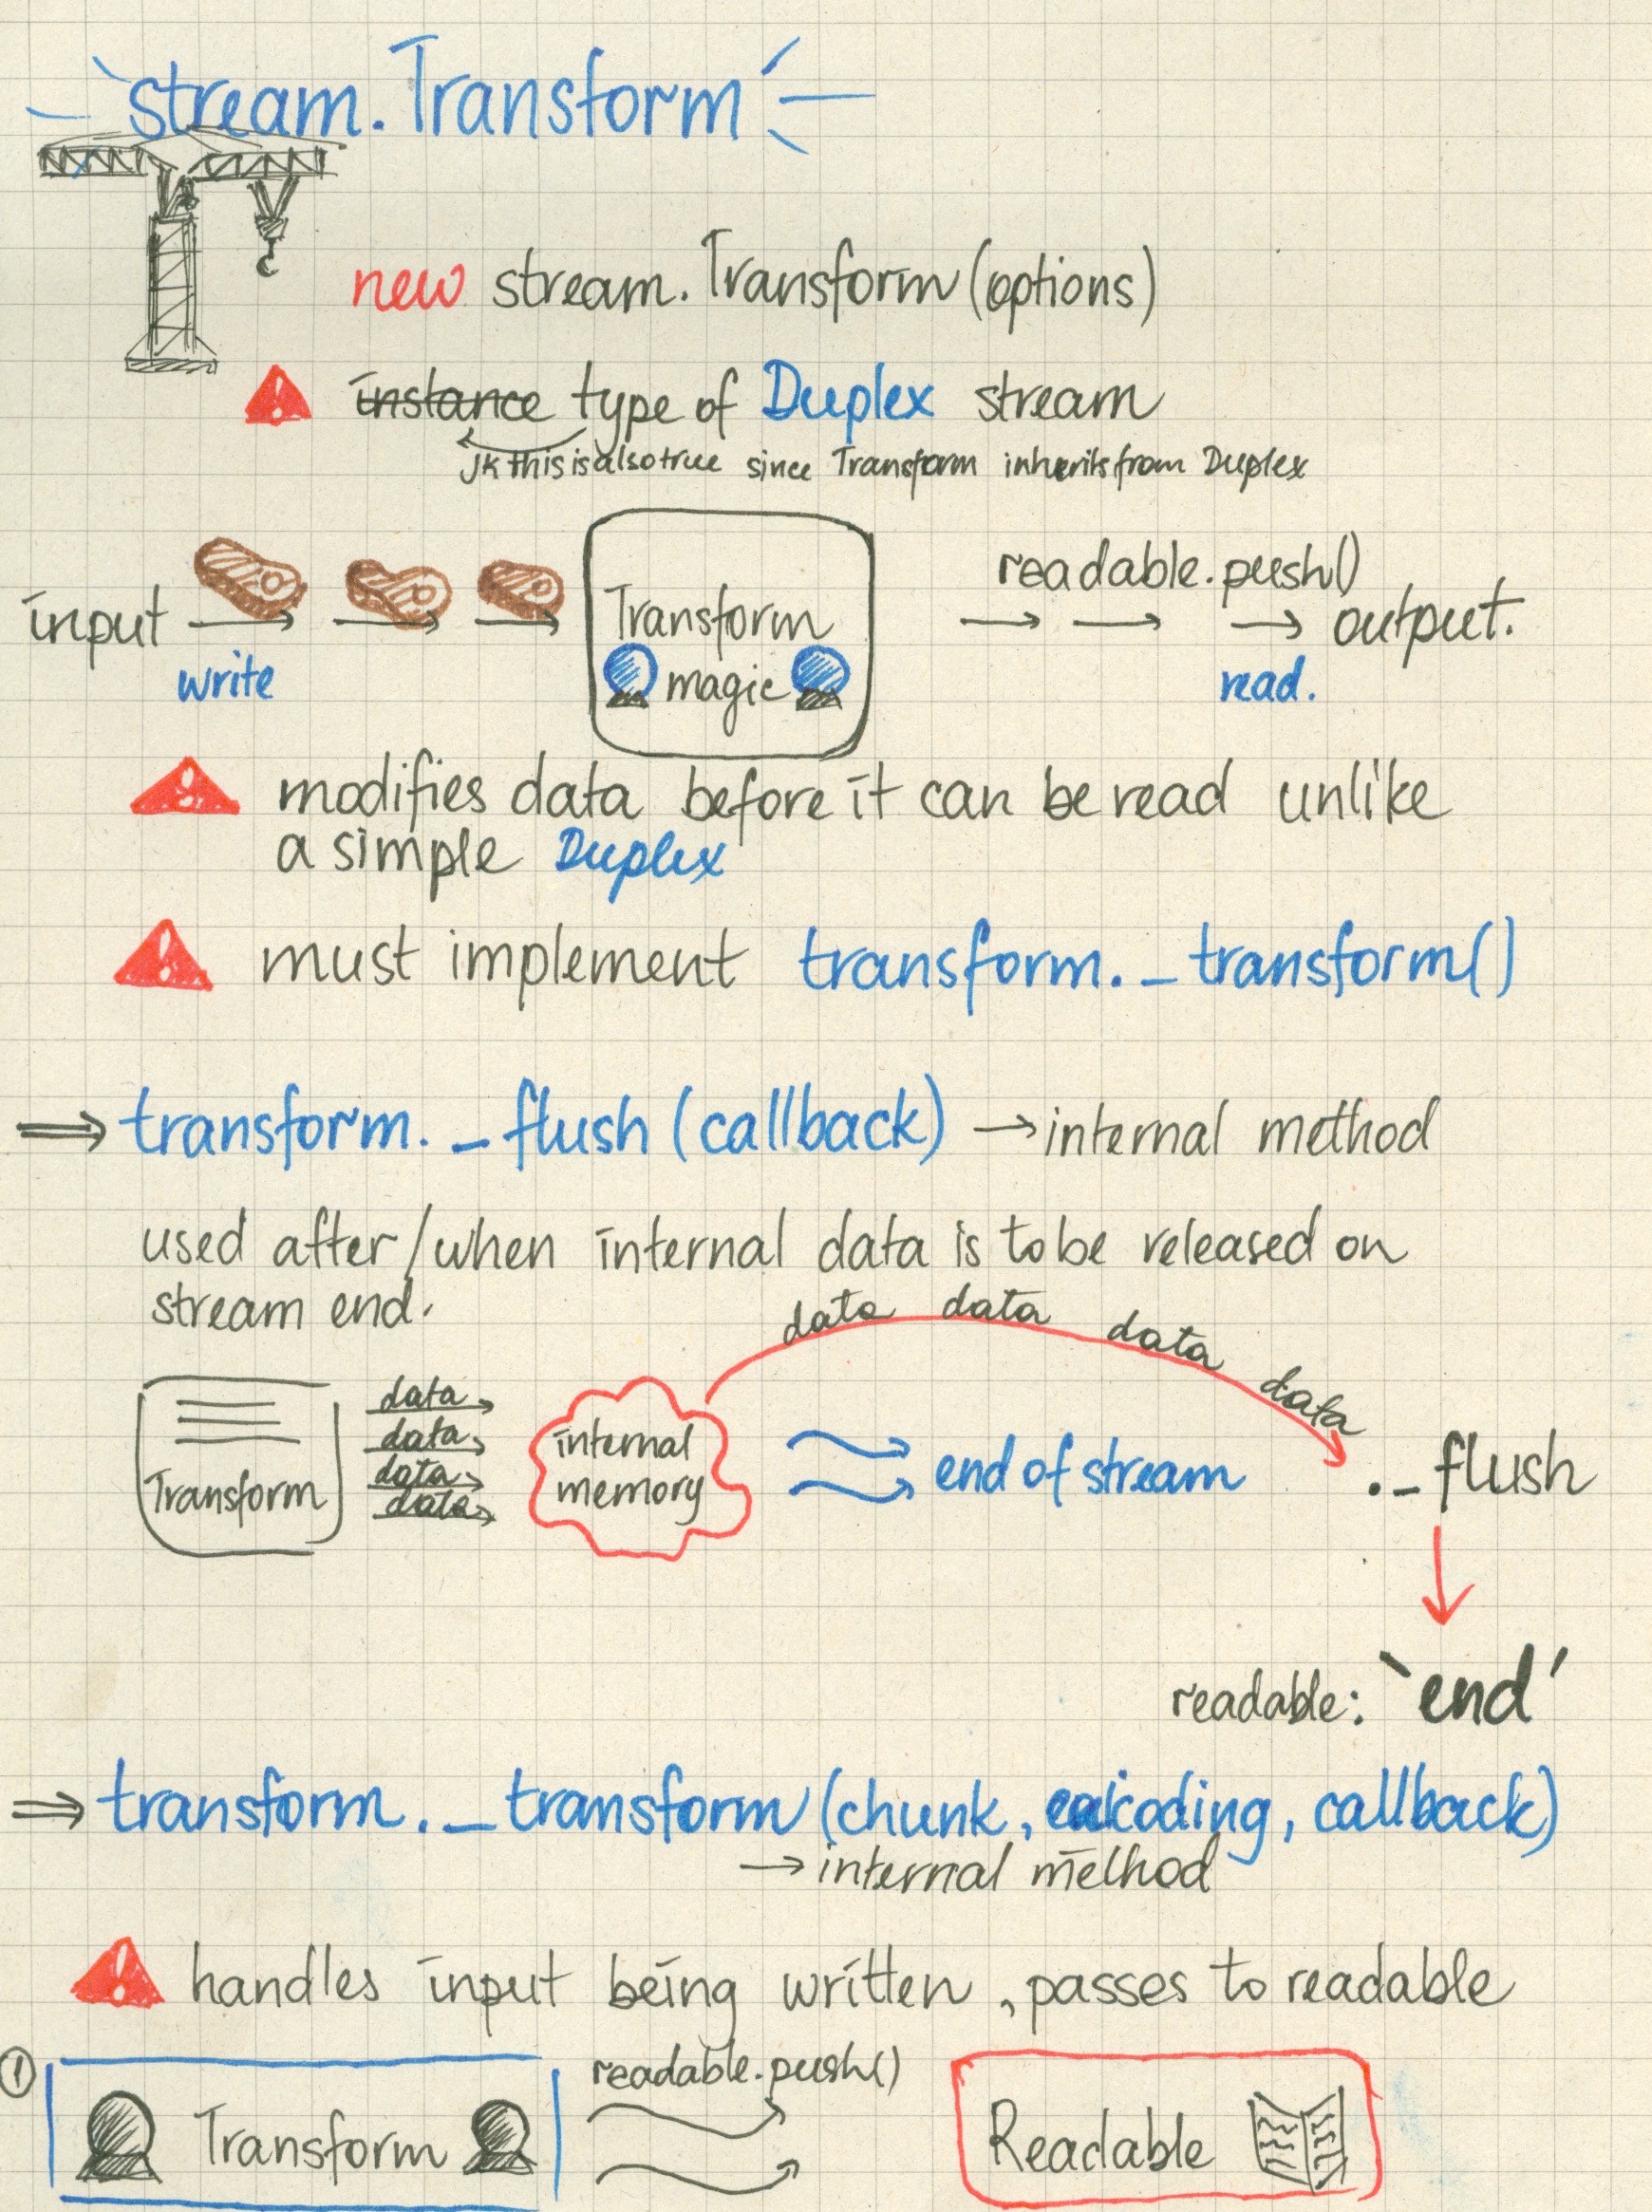 stream.Transform
new stream.Transform(options)
instance type of Duplex stream
jk this is also true since Transform inherits from Duplex
readable.push()
input Transform output.
write magic read.
modifies data before it can be read unlike
a simple Duplex
must implement transform._transform()
⇒ transform._flush(callback) → internal method
used after/when internal data is to be released on
stream end.
data data data data
data
data
data
data
Transform
internal
memory
end of stream
._flush
readable: `end'
⇒ transform._transform(chunk, encoding, callback)
→ internal method
handles input being written, passes to readable
① readable.push()
Transform Readable